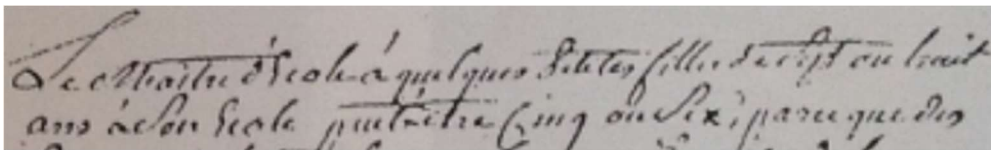 Le Maitre d'Ecole à quelques petites filles de sept ou huit
ans à son Ecole peut être Cinq ou Six, parce que des